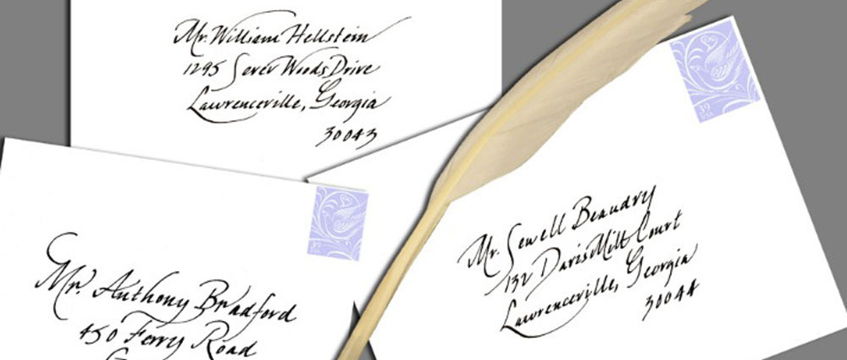 Mr. William Hellstein
1295 Sever Woods Drive
Lawrenceville, Georgia
30043
Mr. Anthony Bradford
450 Ferry Road
Mr. Sewell Beaudry
132 Davis Mill Court
Lawrenceville, Georgia
30044
39